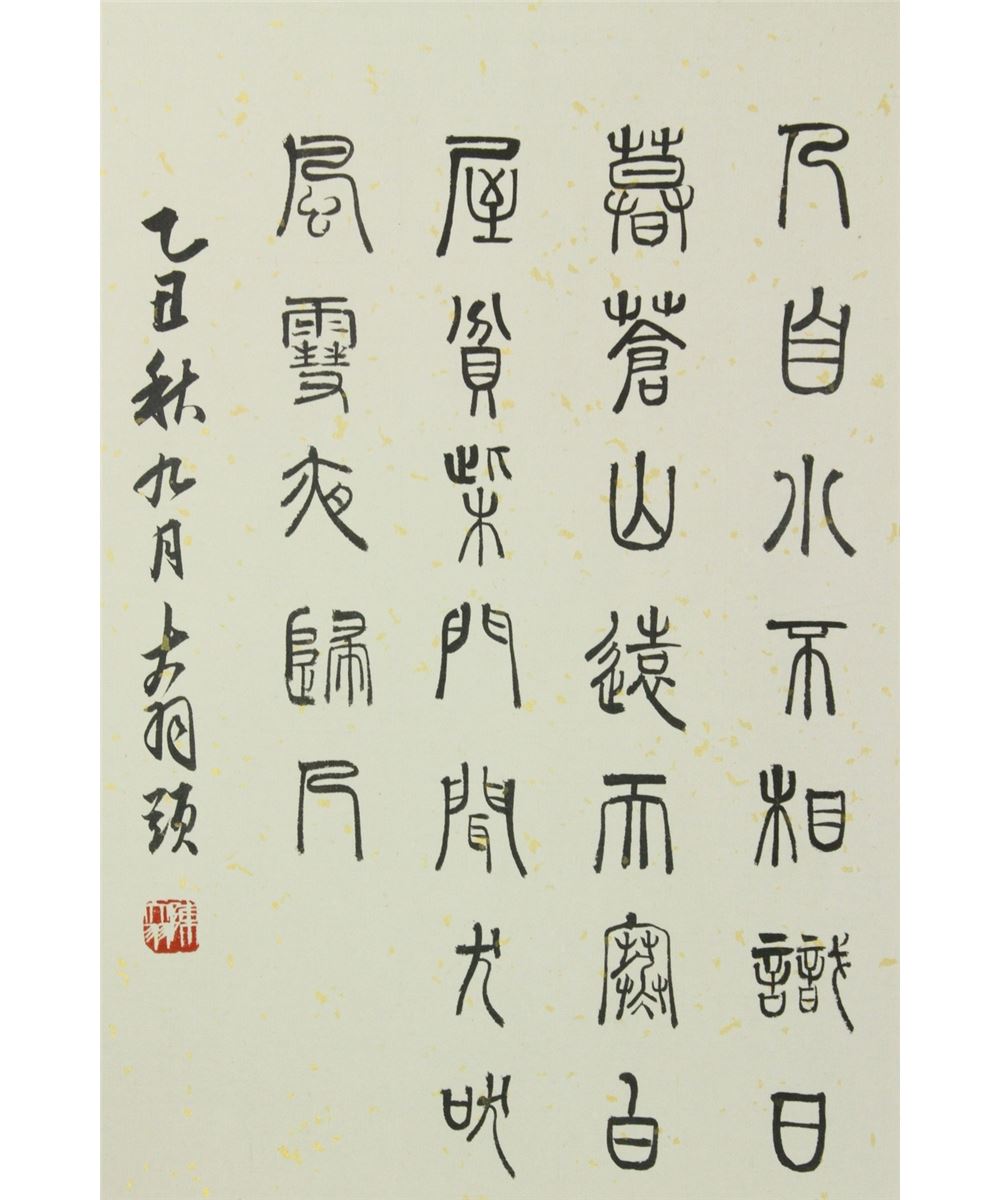 人自水不相識日
暮蒼山遠天寒白
屋貧柴門聞犬吠
風雪夜歸人
乙丑秋九月大羽題
陳大羽